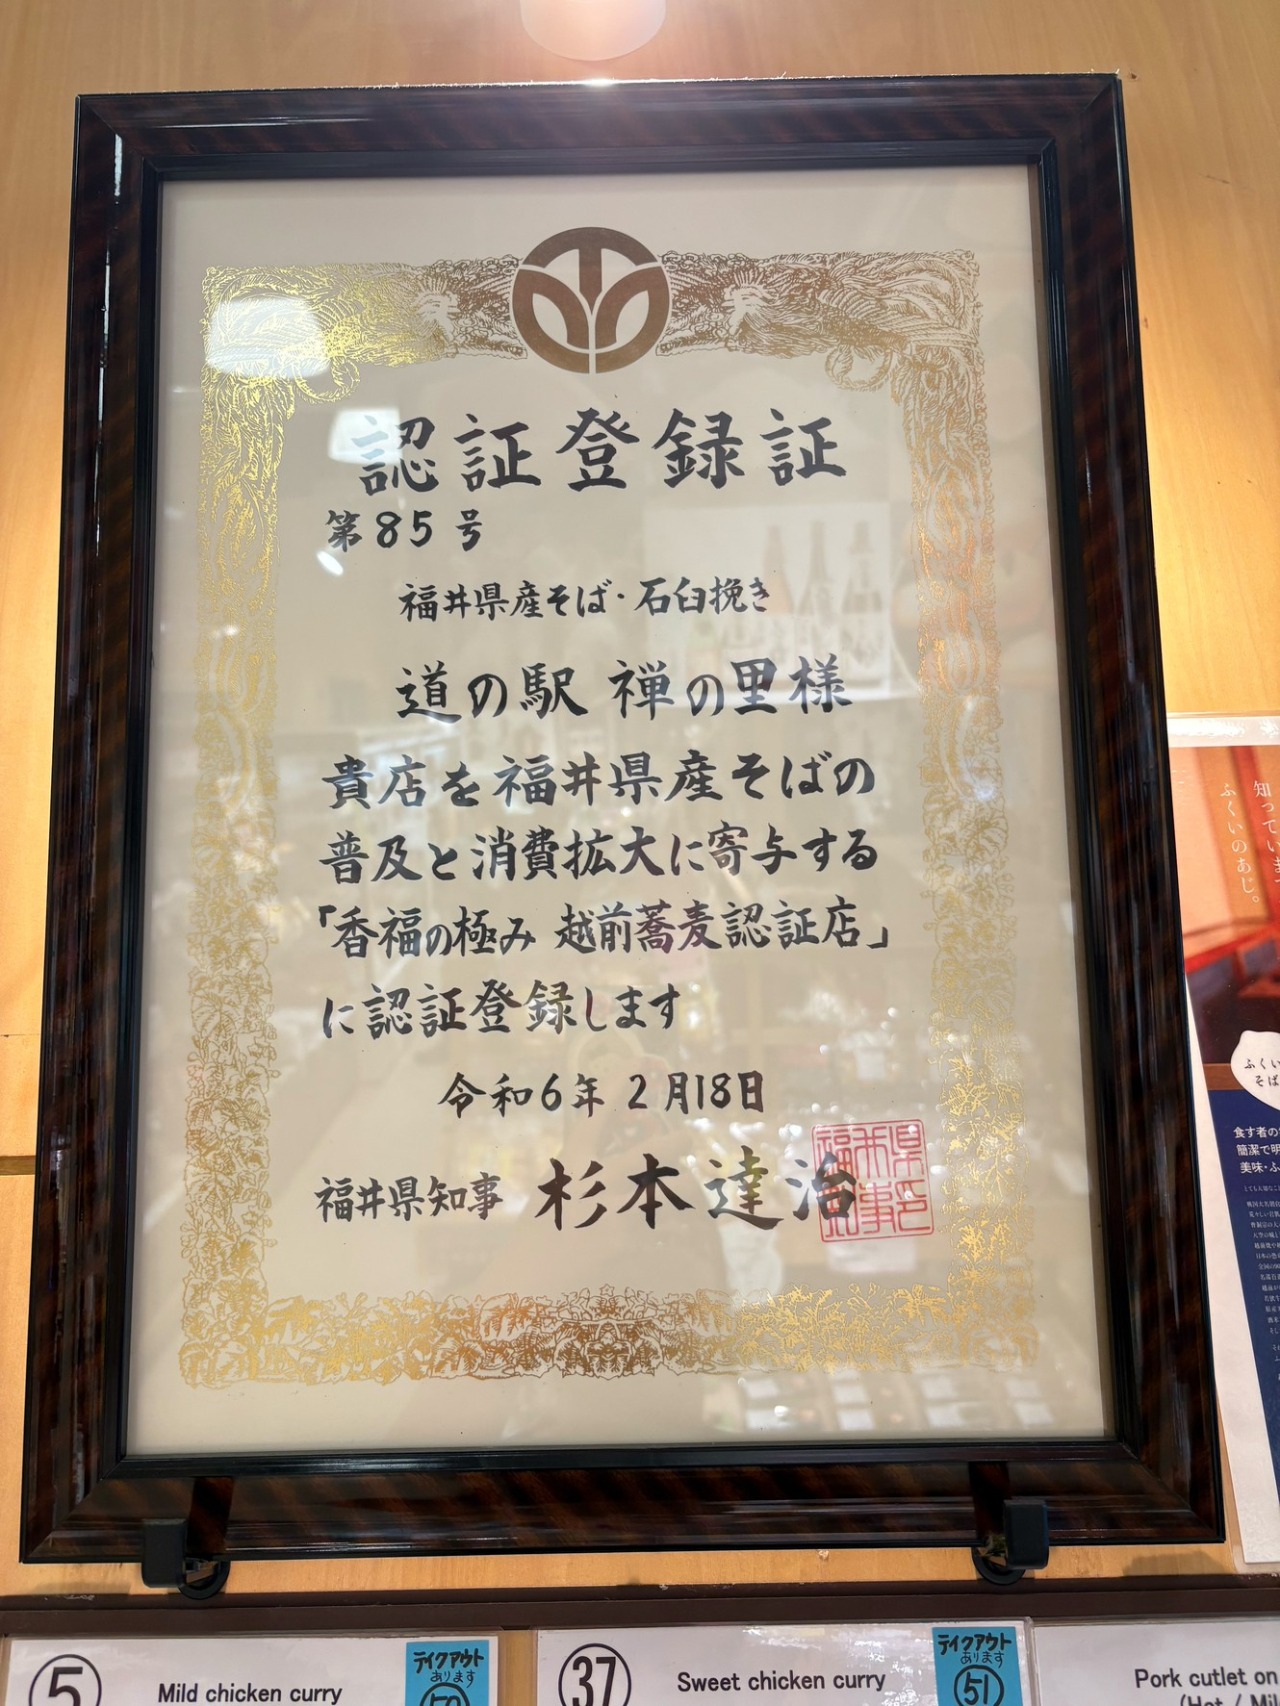 認証登録証
第85号
福井県産そば・石臼挽き
道の駅 禅の里様
貴店を福井県産そばの
普及と消費拡大に寄与する
「香福の極み 越前蕎麦認証店」
に認証登録します
令和6年 2月18日
福井県知事 杉本達治
知ってい
ふくいのあじ。
ふくい
そば
食す者の
簡潔で明
美味・ふ
5
Mild chicken curry
テイクアウト
あります
50
37
Sweet chicken curry
テイクアウト
あります
51
Pork cutlet on